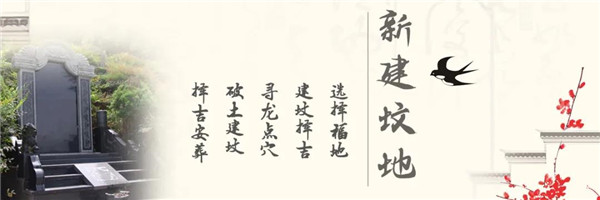 新建坟地
选择福地
建坟择吉
寻龙点穴
破土建坟
择吉安葬